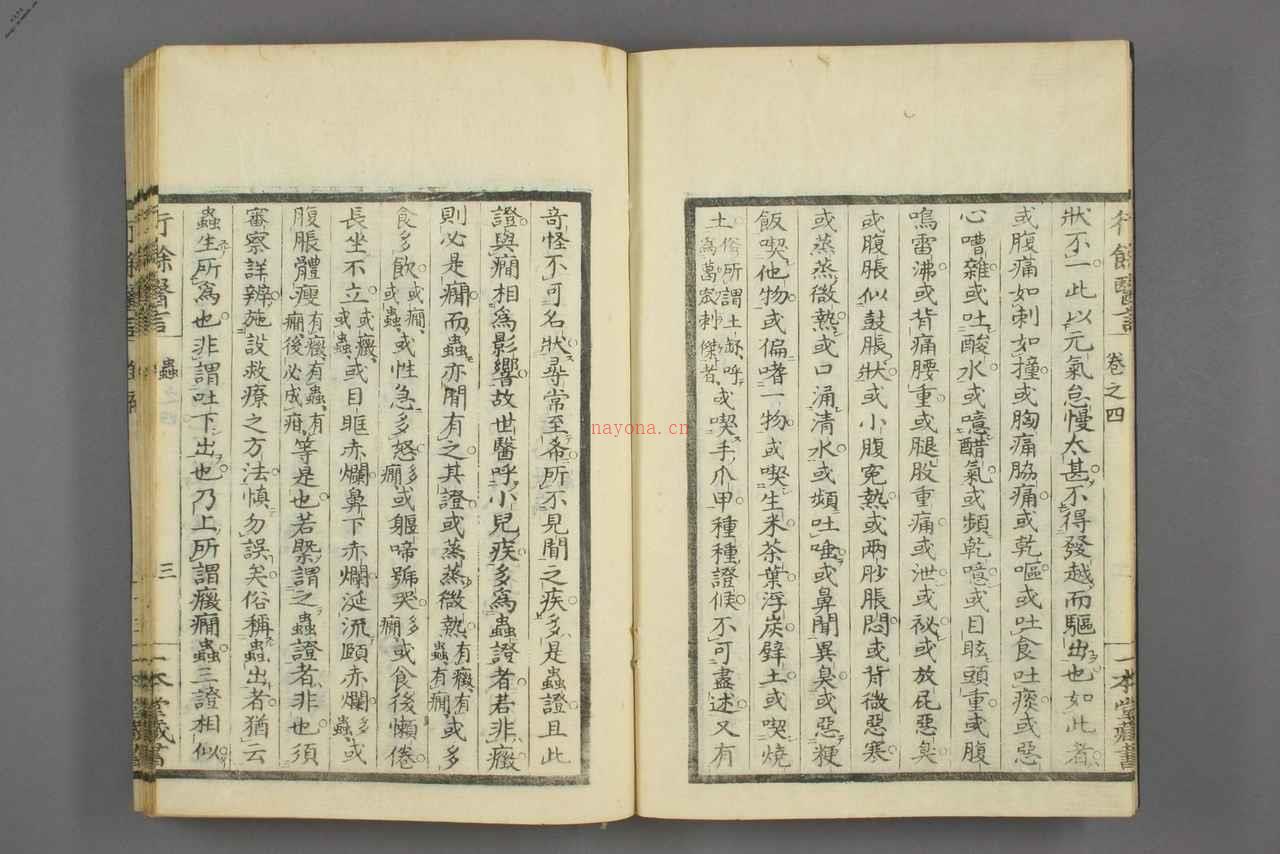 行餘醫言 卷之四 一本堂藏書
狀不一此以元氣怠慢太甚不得發越而驅出也如此者
或腹痛如刺如撞或胸痛脇痛或乾嘔或吐食吐痰或惡
心嘈雜或吐酸水或噫醋氣或頻乾噫或目眩頭重或腹
鳴雷沸或背痛腰重或腿股重痛或泄或祕或放屁惡臭
或腹脹似鼓脹狀或小腹寃熱或兩胁脹悶或背微惡寒
或蒸蒸微熱或口涌清水或頻吐唾或鼻聞異臭或惡粳
飯喫他物或偏嗜一物或喫生米茶葉浮炭壁土或喫燒
土俗所謂土器呼爲萬宏刺傑者或喫手爪甲種種證候不可盡述又有
奇怪不可名狀尋常至希所不見聞之疾多是蟲證且此
證與癇相爲影響故世醫呼小兒疾多爲蟲證者若非癥
則必是癇而蟲亦間有之其證或蒸蒸微熱有癥有蟲有癇或多
食多飮或癇或蟲或性急多怒多癇或軀啼號哭癇或食後懶倦
長坐不立或癥或蟲或目眶赤爛鼻下赤爛涎流頤赤爛多蟲或
腹脹體瘦有癥有蟲有癇後必成疳等是也若槩謂之蟲證者非也須
審察詳辨施設救療之方法愼勿誤矣俗稱蟲出者猶云
蟲生所爲也非謂吐下出也乃上所謂癥癇蟲三證相似
行餘醫言 蟲 三 一本堂藏書
nayona.cn